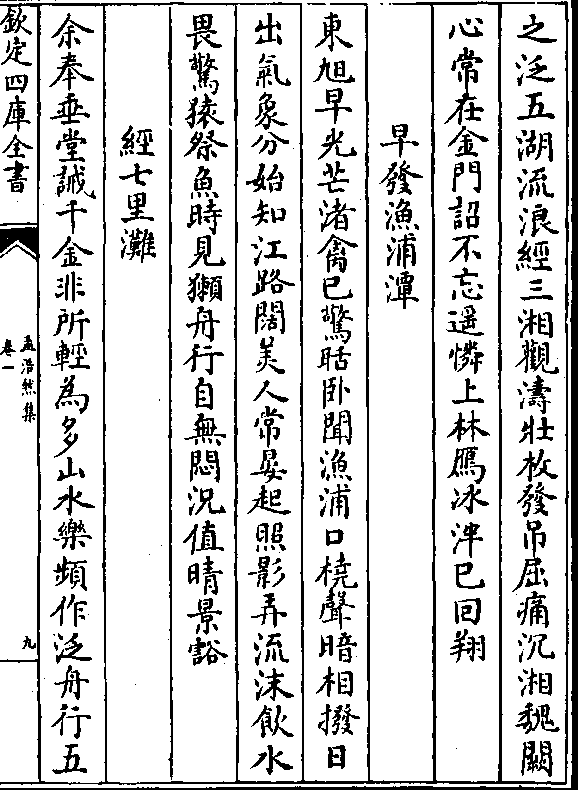 之泛五湖流浪經三湘觀濤壯枚發吊屈痛沉湘魏闕
心常在金門詔不忘遥憐上林鴈冰泮已回翔
早發漁浦潭
東旭早光芒渚禽已驚聒卧聞漁浦口橈聲暗相撥日
出氣象分始知江路闊美人常晏起照影弄流沫飲水
畏驚猿祭魚時見獺舟行自無悶況值晴景豁
經七里灘
余奉垂堂誡千金非所輕為多山水樂頻作泛舟行五
欽定四庫全書
孟浩然集
卷一
九